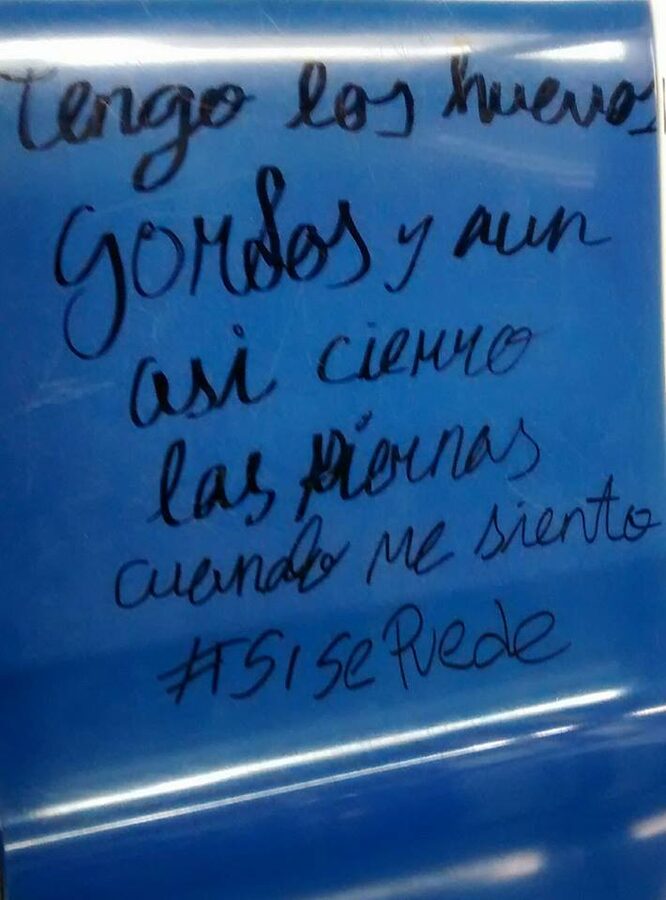 Tengo los huevos
gordos y aun
asi cierro
las piernas
cuando me siento
#SiSePuede